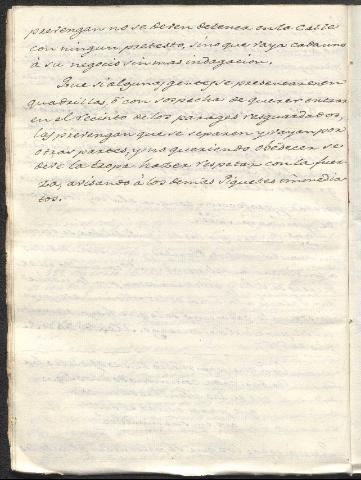 prevengan no se deven detener en la Calle
con ningun pretesto, sino que vaya cada uno
à su negocio sin mas indagacion.
Que si algunas gentes se presentaren en
quadrillas, ò con sospecha de querer entrar
en el recinto de los parages resguardados,
las prevengan que se separen y vayan por
otras partes, y no queriendo obedecer se
deve la tropa hazer respetar con la fuer-
za, avisando à los demas Piquetes inmedia-
tos.